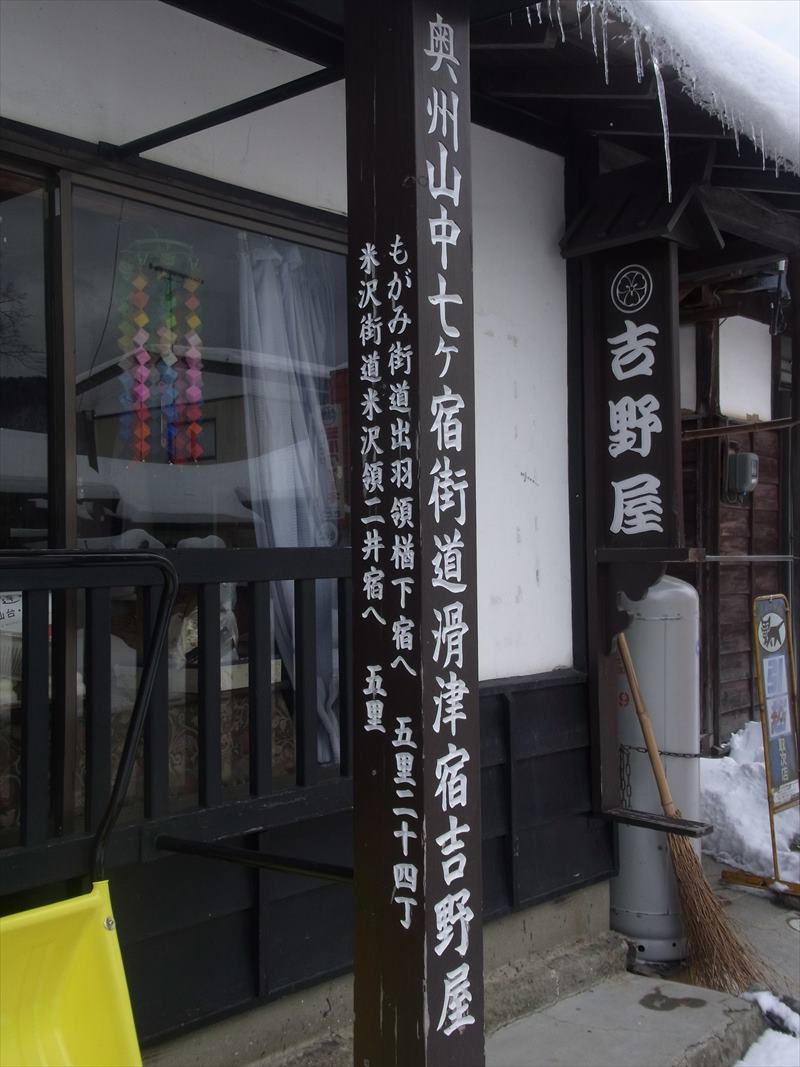 奥州山中七ヶ宿街道滑津宿吉野屋
もがみ街道出羽領楢下宿へ 五里二十四丁
米沢街道米沢領二井宿へ 五里
吉野屋